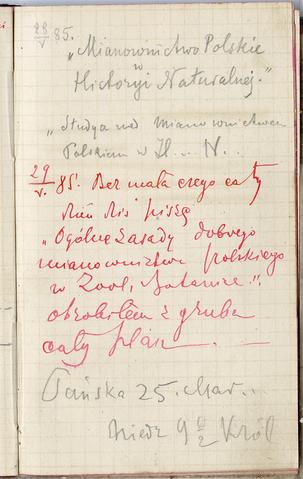 28/V 85.
„Mianownictwo Polskie
w
Historyi Naturalnej."
„Studya nad mianownictwem
Polskiem w H... N..
29/V. 85. Bez mała czego cały
dzień dziś piszę
„Ogólne zasady dobrego
mianownictwa polskiego
w Zool, Botanice".
obrobiłem z gruba
cały plan.
Tańska 25. Mar..
9